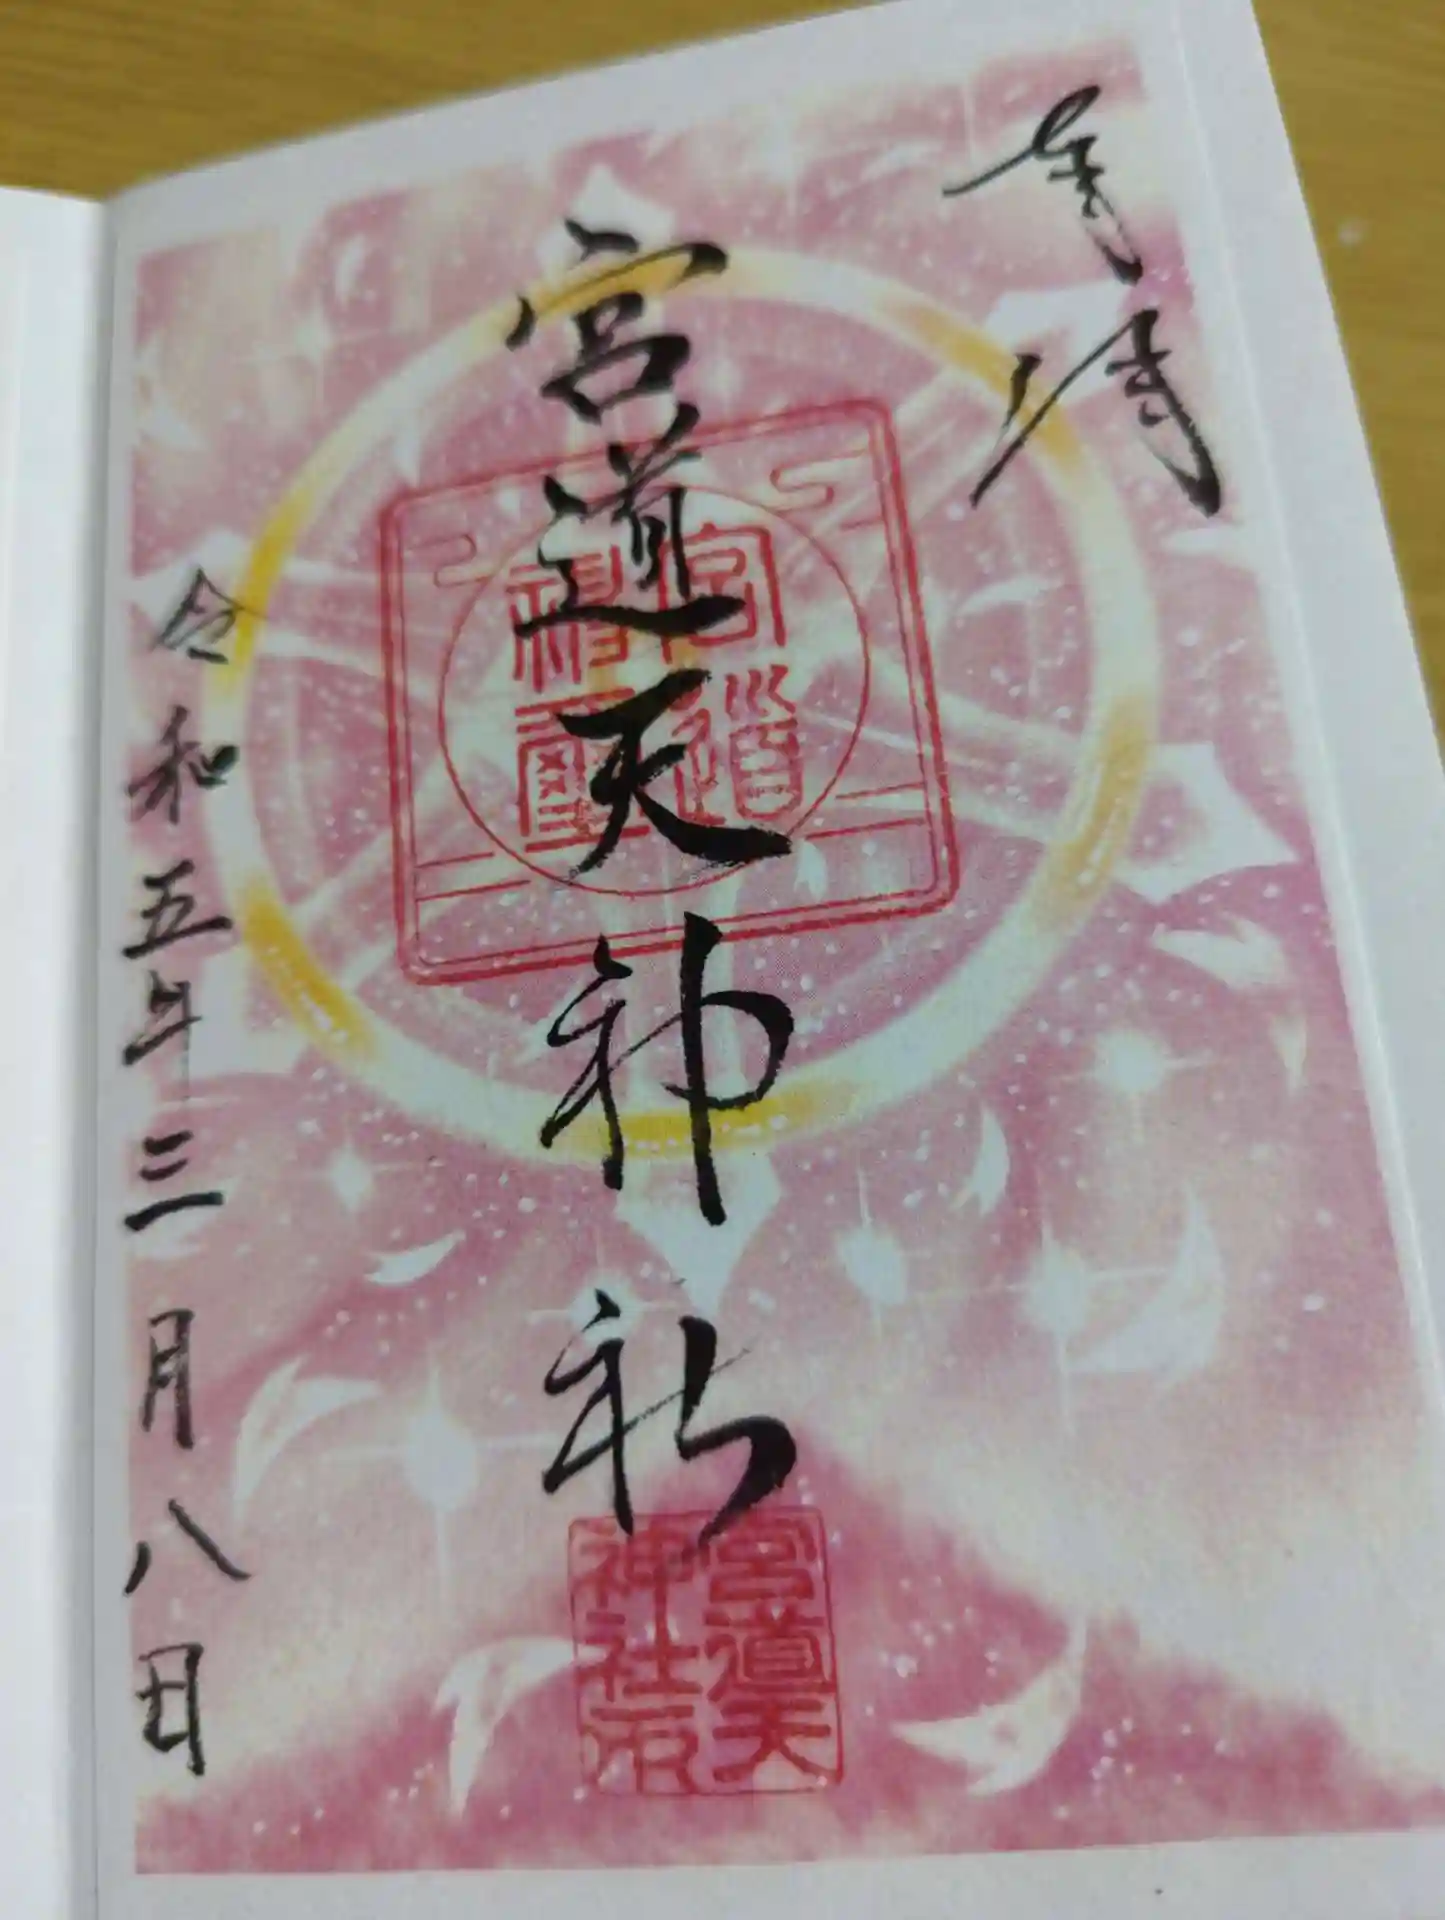 奉拝
宮道天神社
宮道
神璽
宮道天
神社印
令和五年三月八日